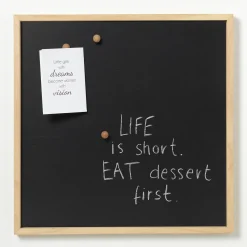 dreams
vision
LIFE
is short.
EAT dessert
first.